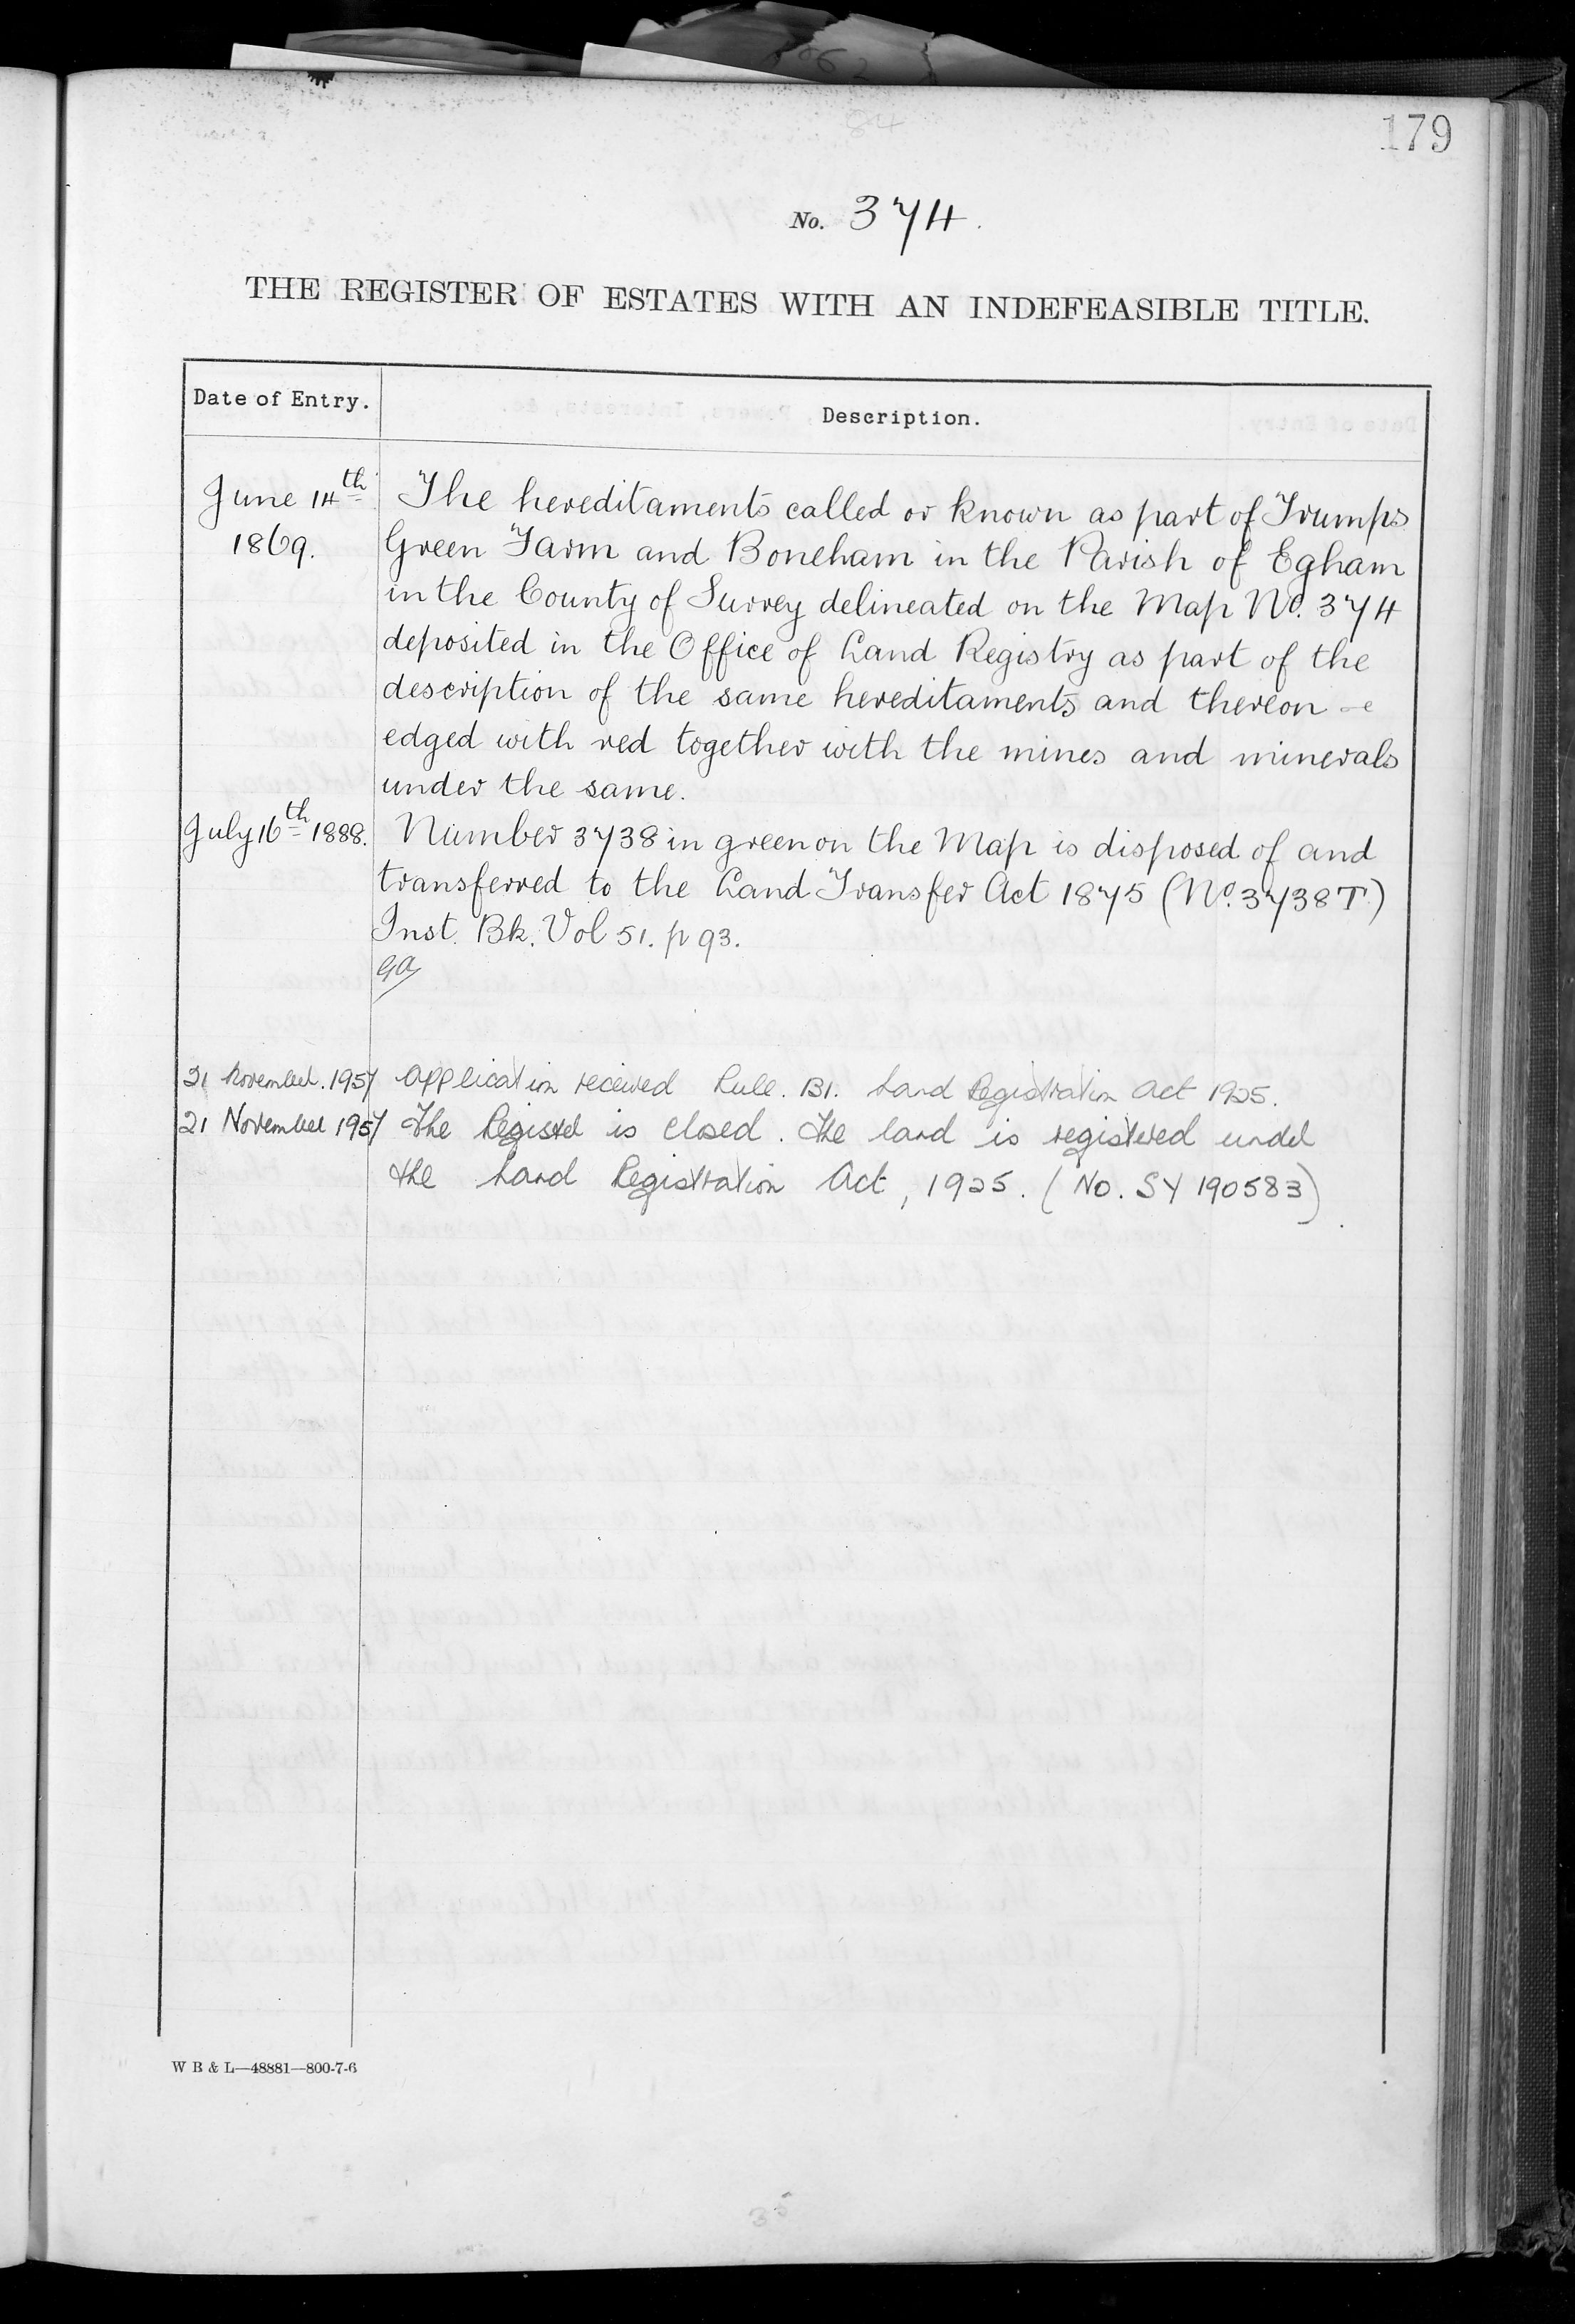 179
No. 374.
THE REGISTER OF ESTATES WITH AN INDEFEASIBLE TITLE.
Date of Entry. Description.
June 14th The hereditaments called or known as part of Trumps
1869. Green Farm and Boneham in the Parish of Egham
in the County of Surrey delineated on the Map No. 374
deposited in the Office of Land Registry as part of the
description of the same hereditaments and thereon
edged with red together with the mines and minerals
under the same.
July 16th 1888. Number 3738 in green on the Map is disposed of and
transferred to the Land Transfer Act 1875 (No. 3738T)
Inst. Bk. Vol 51. p 93.
21 November. 1957 Application received Rule. 131. Land Registration Act 1925.
21 November 1957 The Register is closed. The land is registered under
the Land Registration Act, 1925. (No. SY 190583).
W B & L—48881—800-7-6
35